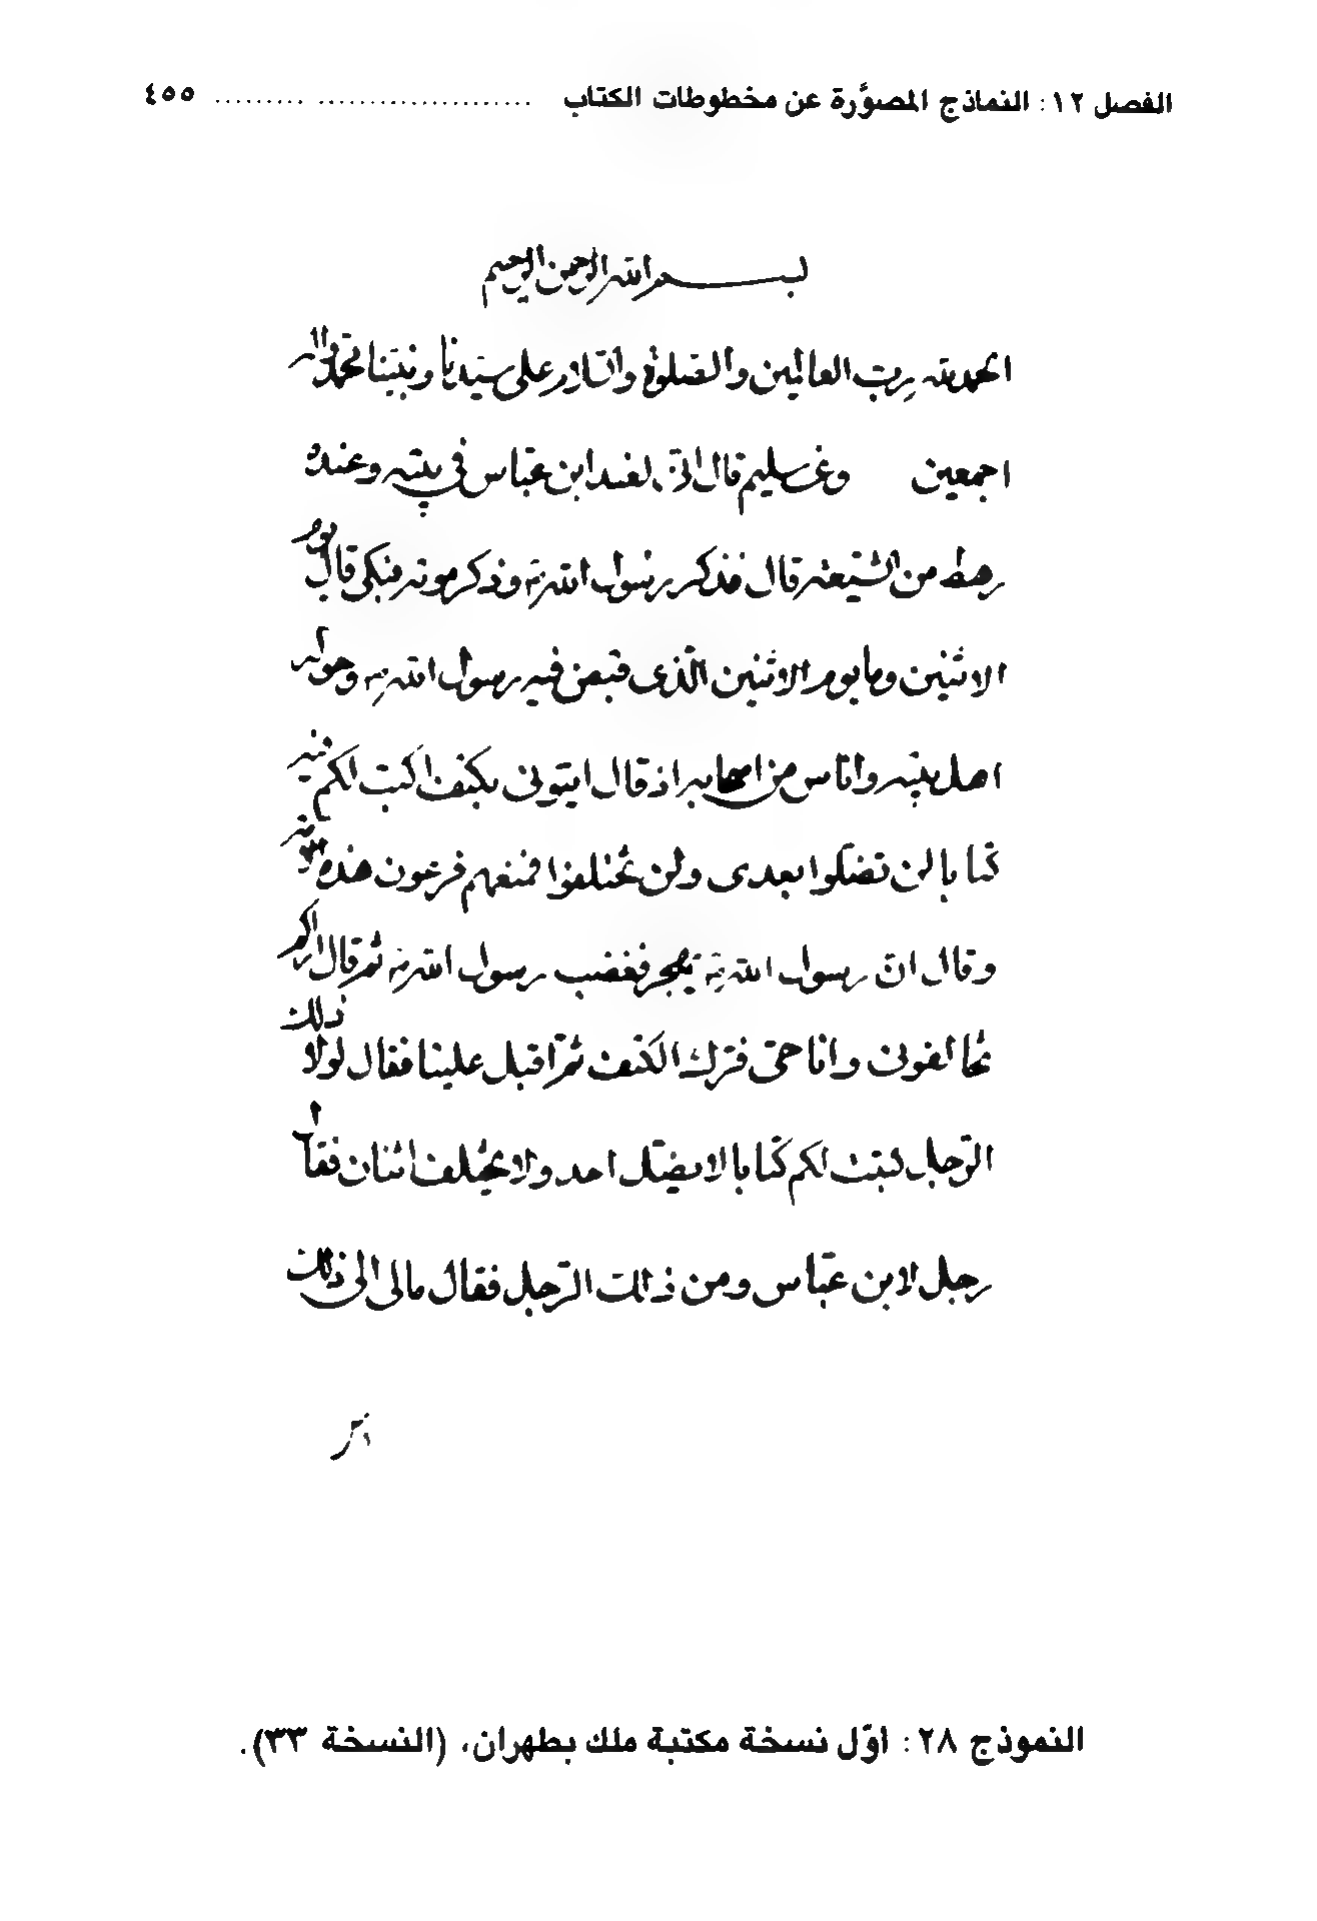 الفصل ١٢: النماذج المصوَّرة عن مخطوطات الكتاب ................................ ٤٥٥
بسم الله الرحمن الرحيم
الحمد لله رب العالمين والصلوة والسلام على سيدنا ونبينا محمد واله
اجمعين وعن سليم قال انى لعند ابن عباس في بيته وعنده
رهط من الشيعه قال فذكر رسول الله ص وذكر موته فبكى قال يوم
الاثنين وما يوم الاثنين الذى قبض فيه رسول الله ص وحوله
اهل بيته واناس من اصحابه اذ قال ايتونى بكتف اكتب لكم فيه
كتابا لن تضلوا بعدى ولن تختلفوا فمنعهم فرعون هذه
وقال ان رسول الله ص يهجر فغضب رسول الله ص ثم قال اراكم
تخالفونى وانا حى فترك الكتف ثم اقبل علينا فقال لولا ذلك
الرجل لكتبت لكم كتابا لا يضل احد ولا يختلف اثنان فقال
رجل لابن عباس ومن ذلك الرجل فقال مالى الى ذلك
النموذج ٢٨: اوّل نسخة مكتبة ملك بطهران، (النسخة ٣٣).